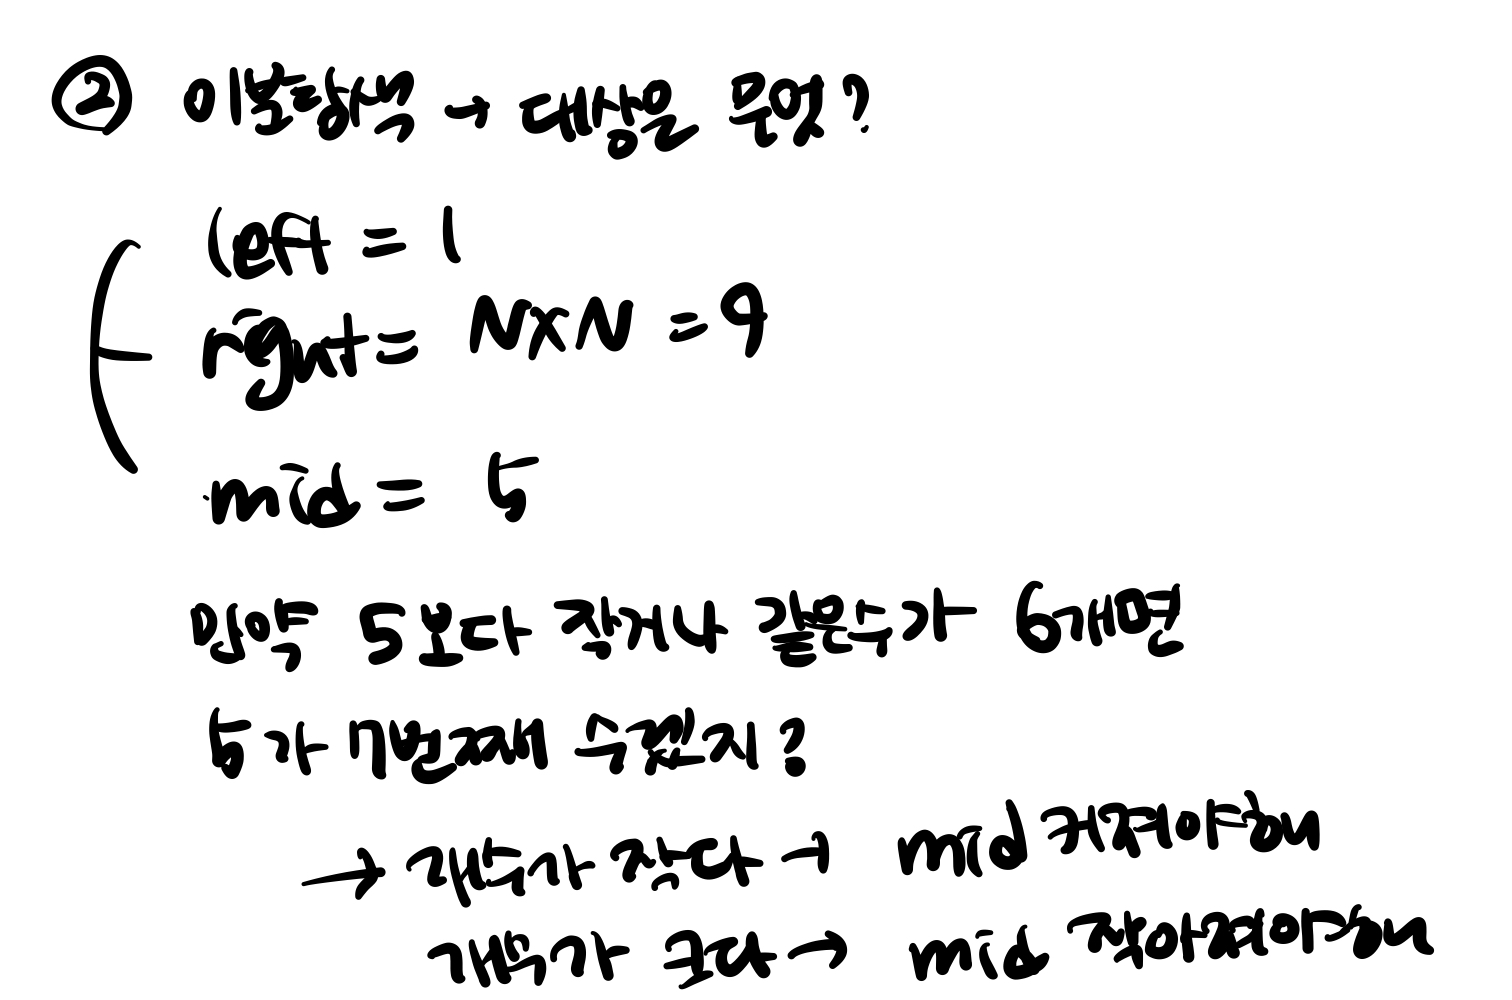 ② 이분탐색 → 대상은 무엇?
left = 1
right = N×N = 9
mid = 5
만약 5보다 작거나 같은수가 6개면
5가 7번째 수겠지?
→ 개수가 작다 → mid 커져야해
개수가 크다 → mid 작아져야해